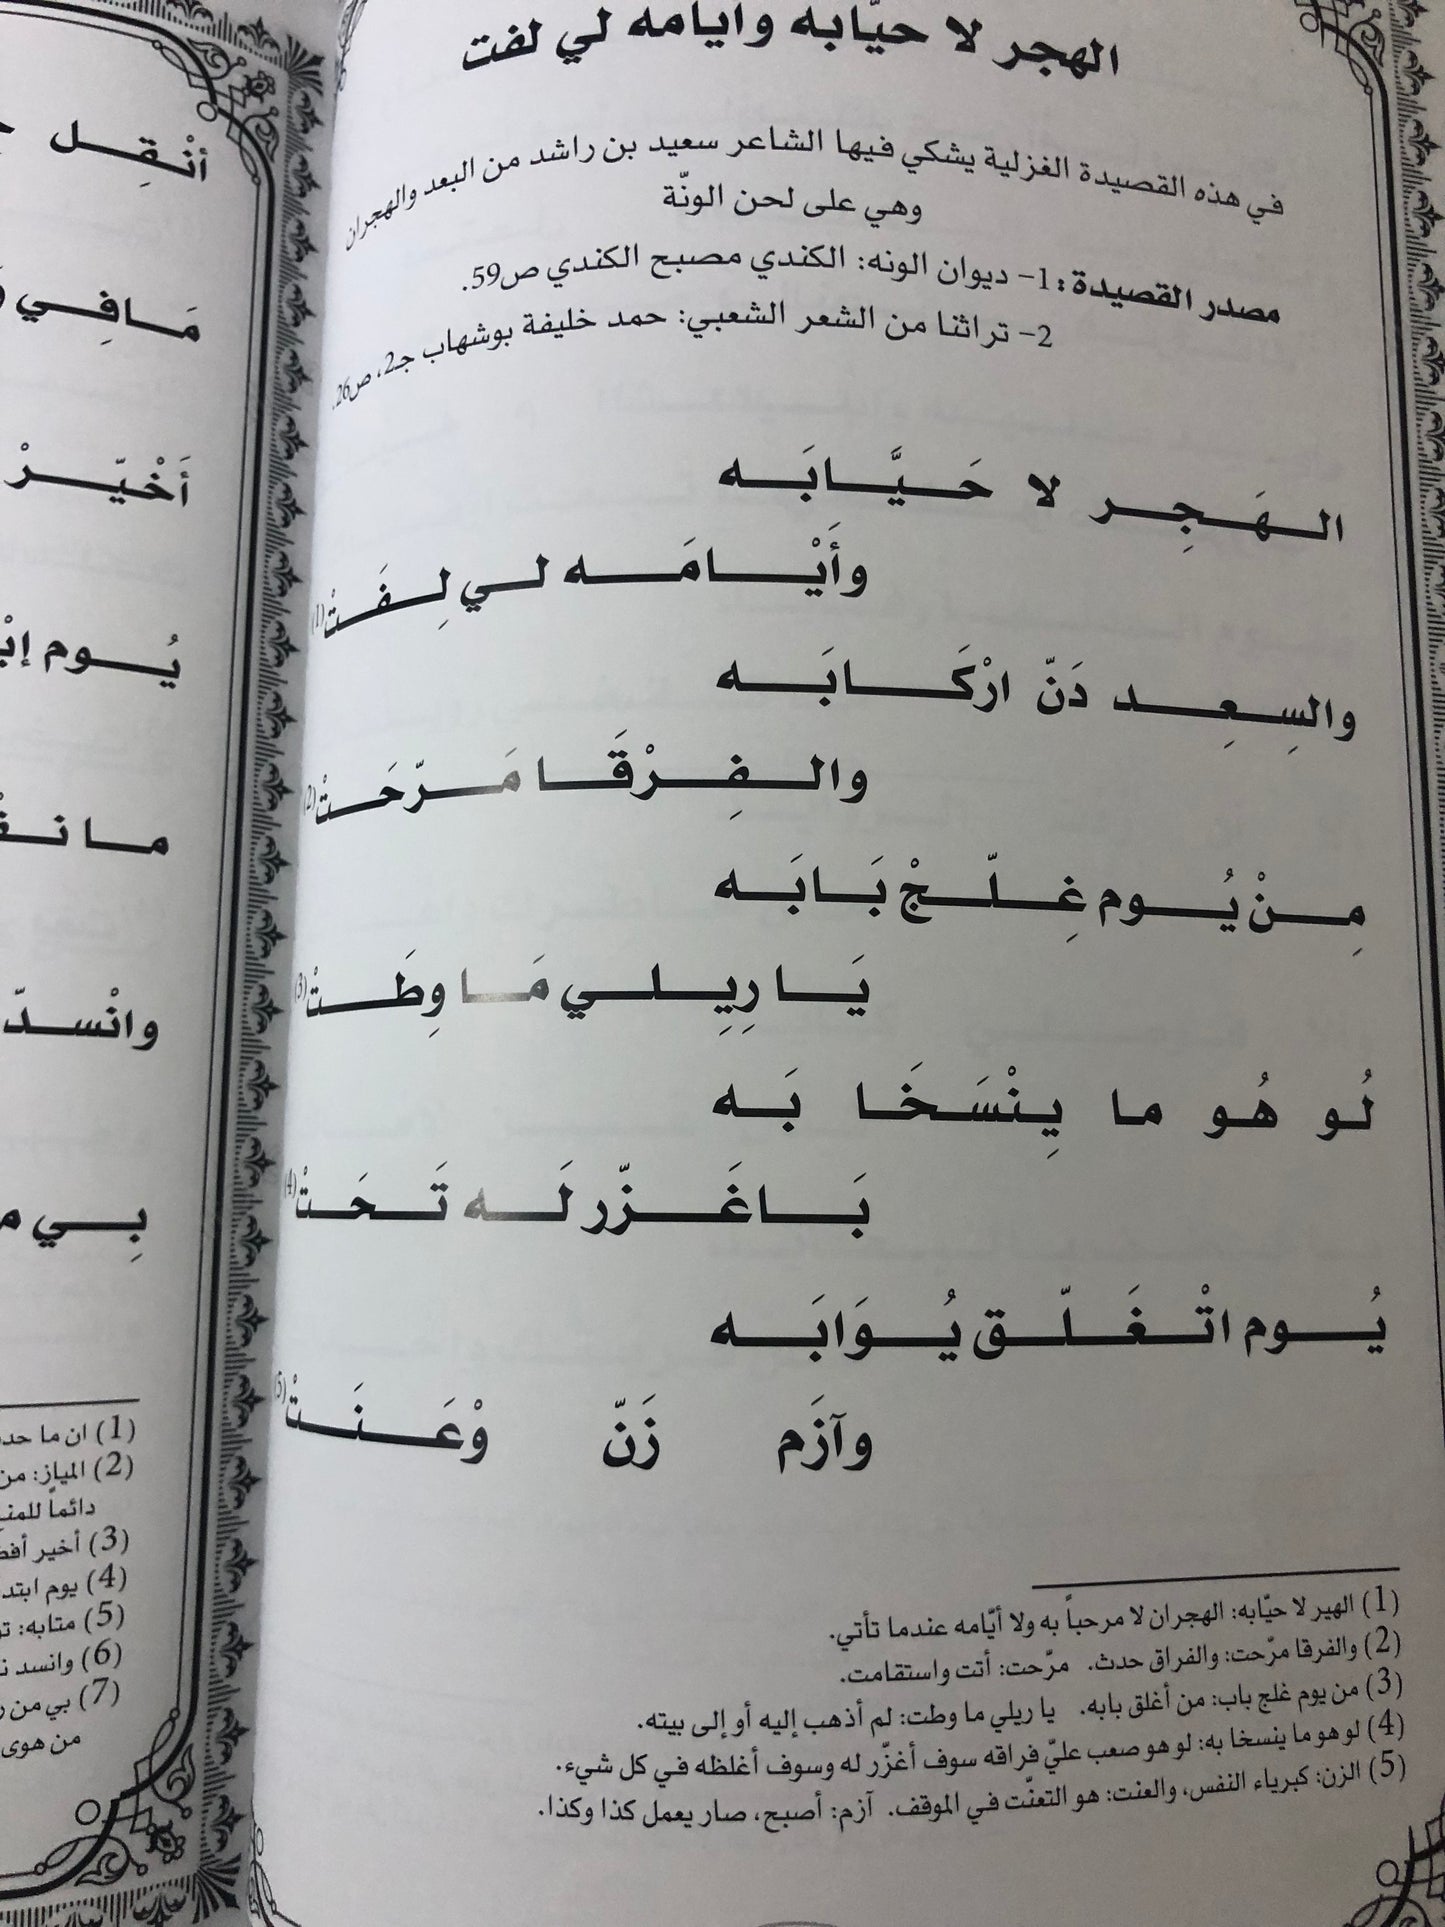 الهجر لا حيّابه وأيامه لي لفت
في هذه القصيدة الغزلية يشكي فيها الشاعر سعيد بن راشد من البعد والهجران
وهي على لحن الونّة
مصدر القصيدة: 1- ديوان الونه: الكندي مصبح الكندي ص59.
2- تراثنا من الشعر الشعبي: حمد خليفة بوشهاب جـ2، ص26.
الهَجِر لا حَيَّابَه
وأَيْامَه لي لِفَتْ(1)
والسِعِد دَنّ ارْكَابَه
والفِرْقَا مَرّحَتْ(2)
مِنْ يُوم غِلّجْ بَابَه
يَا رِيِلي مَا وِطَتْ(3)
لُو هُو ما يِنْسَخَا بَه
بَاغَزّر لَه تَحَتْ(4)
يُوم اتْغَلّق يُوَابَه
وآزَم زَنّ وْعَنَتْ(5)
(1) الهير لا حيّابه: الهجران لا مرحباً به ولا أيّامه عندما تأتي.
(2) والفرقا مرّحت: والفراق حدث. مرّحت: أتت واستقامت.
(3) من يوم غلج باب: من أغلق بابه. يا ريلي ما وطت: لم أذهب إليه أو إلى بيته.
(4) لو هو ما ينسخا به: لو هو صعب عليّ فراقه سوف أغزّر له وسوف أغلظه في كل شيء.
(5) الزن: كبرياء النفس، والعنت: هو التعنّت في الموقف. آزم: أصبح، صار يعمل كذا وكذا.
أنْقِل
مَافِي
أَخْيّرْ
يُوم
ما
وانْسدّ
بِي
(1) ان ما
(2) المياز: من
دائماً
(3) أخير
(4) يوم
(5) متابه:
(6) وانسد
(7) بي من
من هوى